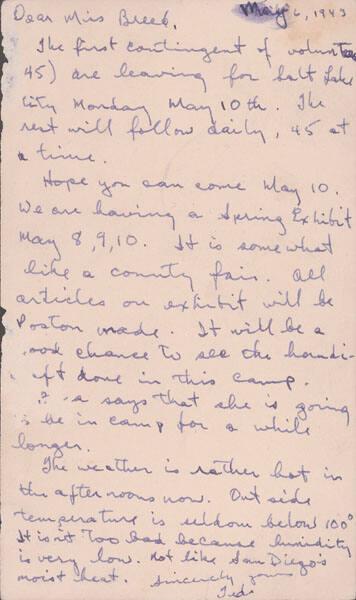 May 6, 1943
Dear Miss Breed,
The first contingent of volunteers
45) are leaving for Salt Lake
City Monday May 10th. The
rest will follow daily, 45 at
a time.
Hope you can come May 10.
We are having a Spring Exhibit
May 8, 9, 10. It is somewhat
like a county fair. All
articles on exhibit will be
Poston made. It will be a
good chance to see the handi-
craft done in this camp.
says that she is going
to be in camp for a while
longer.
The weather is rather hot in
the afternoons now. Out side
temperature is seldom below 100°
It isn't too bad because humidity
is very low. Not like San Diego's
moist heat. Sincerely yours
Ted